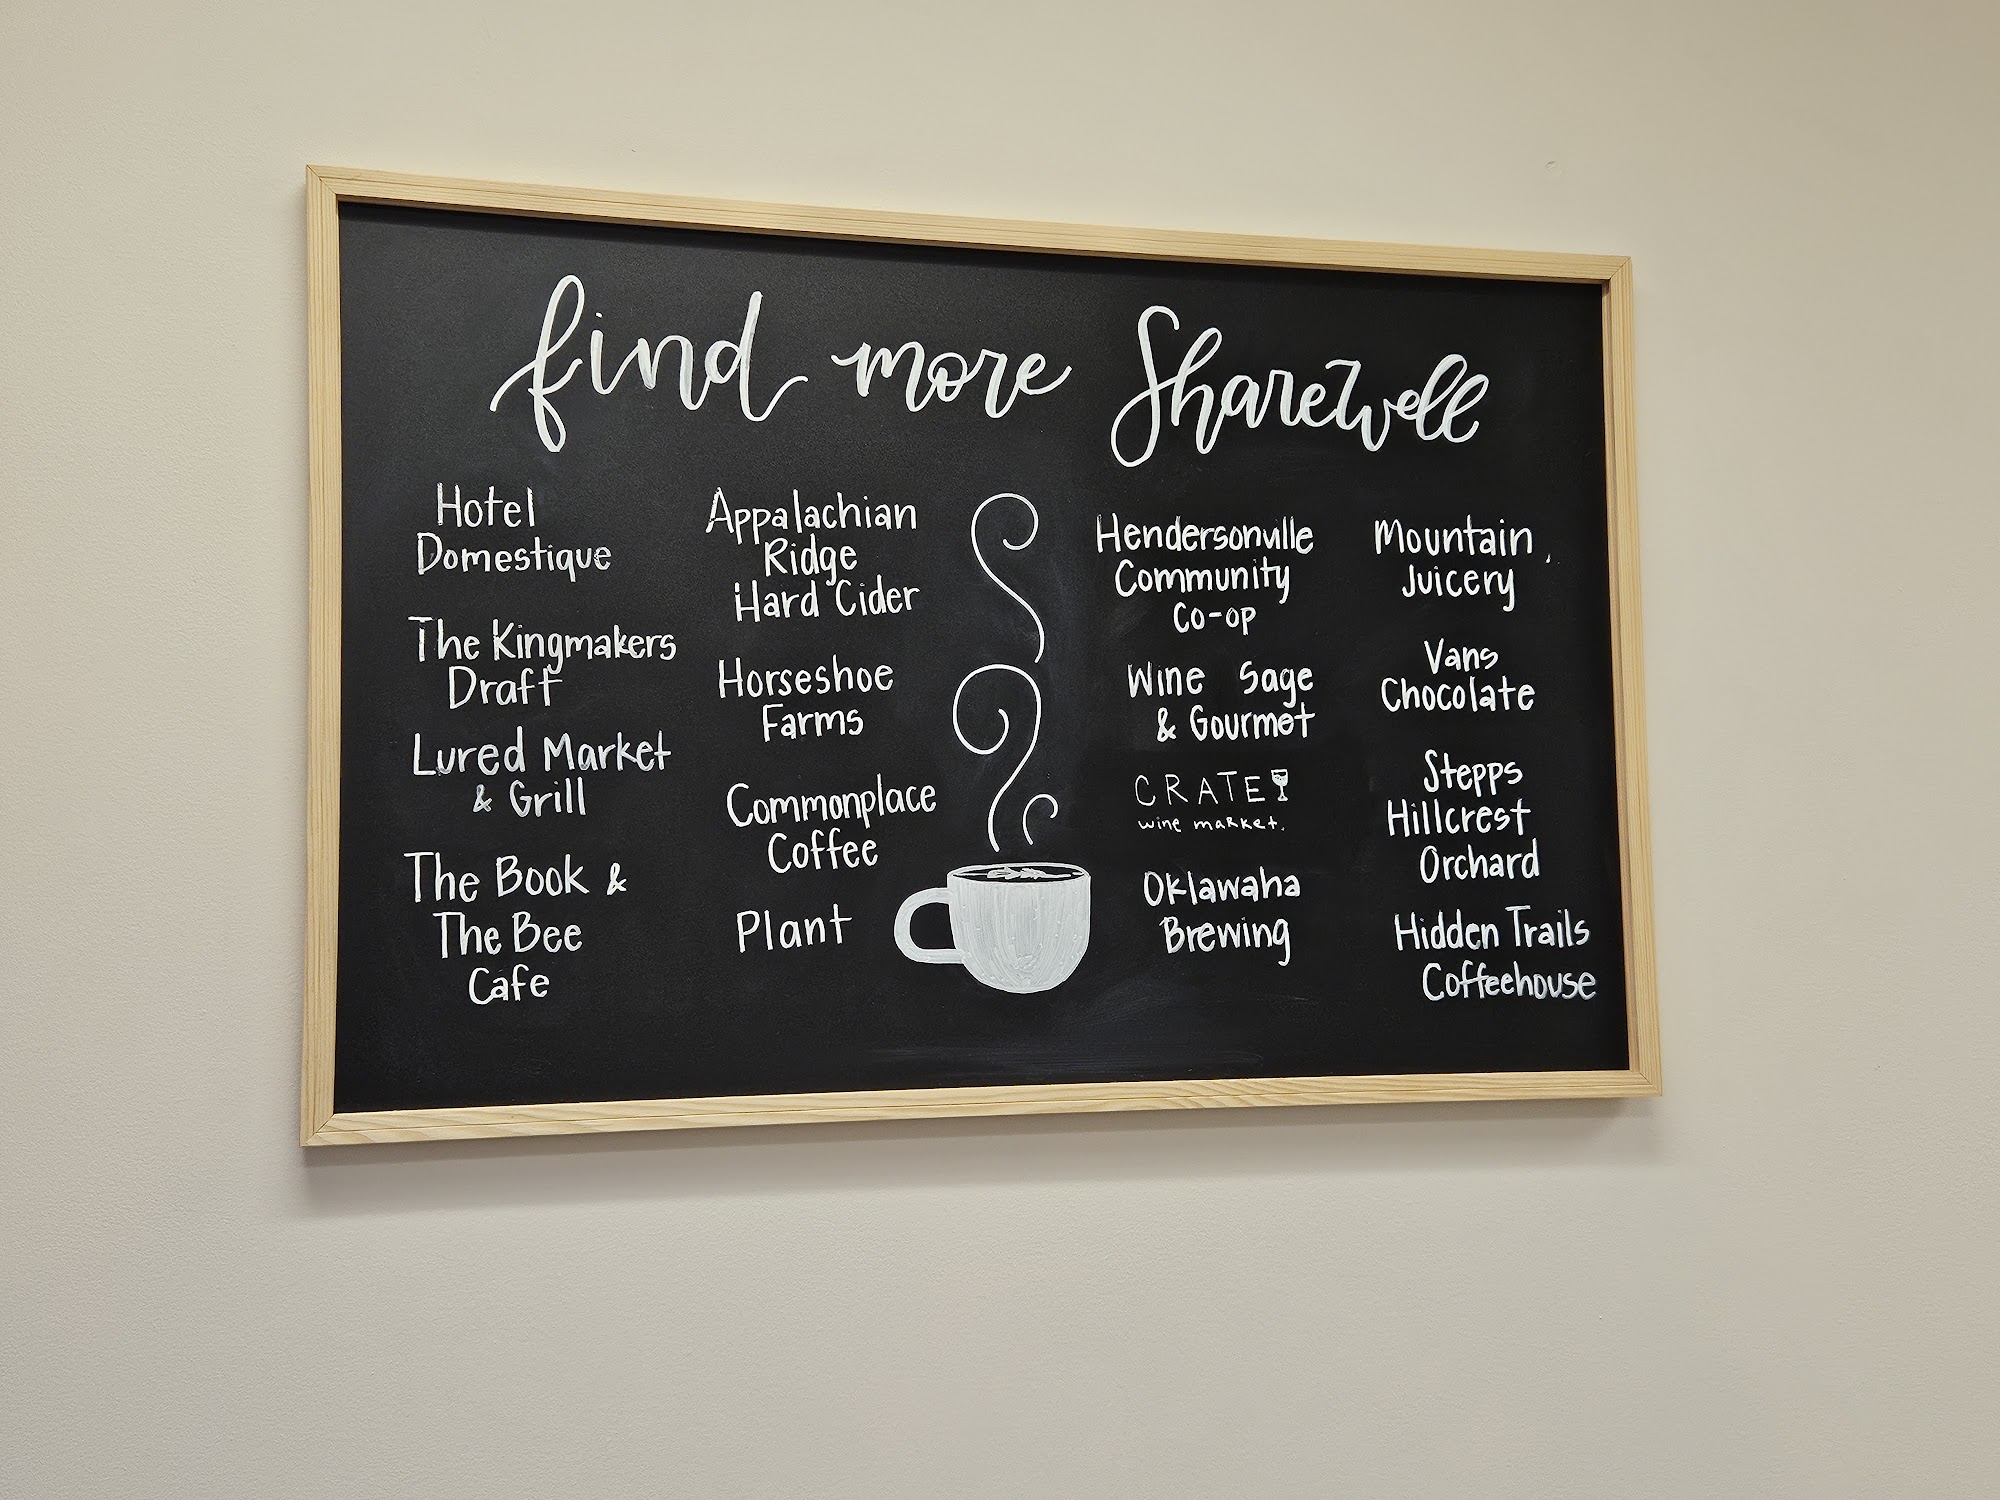 find more Sharewell
Hotel
Domestique
The Kingmakers
Draft
Lured Market
& Grill
The Book &
The Bee
Cafe
Appalachian
Ridge
Hard Cider
Horseshoe
Farms
Commonplace
Coffee
Plant
Hendersonville
Community
Co-op
Wine Sage
& Gourmet
CRATE
wine market.
Oklawaha
Brewing
Mountain
Juicery
Vans
Chocolate
Stepps
Hillcrest
Orchard
Hidden Trails
Coffeehouse